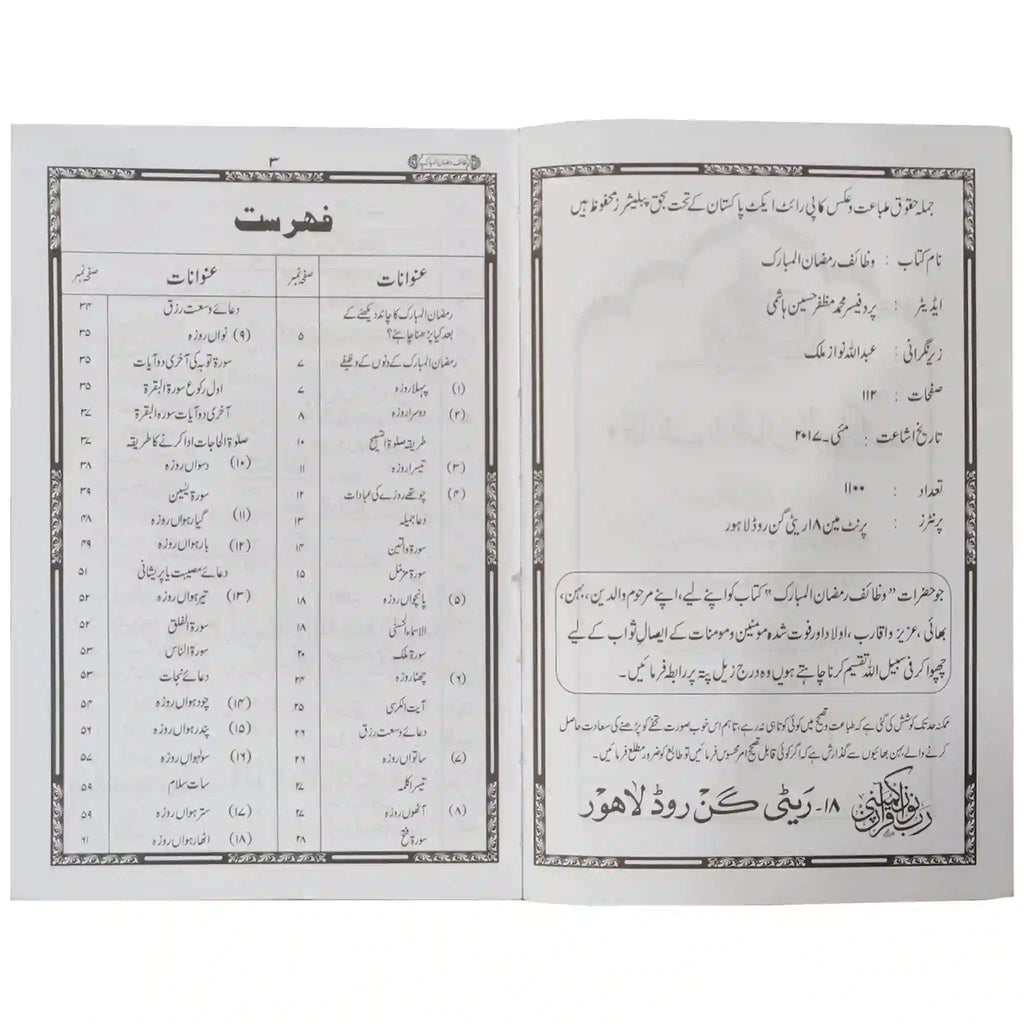 جملہ حقوق طباعت و عکس کاپی رائٹ ایکٹ پاکستان کے تحت بحق پبلیشرز محفوظ ہیں
نام کتاب : وظائف رمضان المبارک
ایڈیٹر : پروفیسر محمد مظفر حسین ہاشمی
زیر نگرانی : عبداللہ نواز ملک
صفحات : ۱۱۲
تاریخ اشاعت : مئی۔۲۰۱۷
تعداد : ۱۱۰۰
پرنٹرز : پرنٹ مین ۱۸ ریٹی گن روڈ لاہور
جو حضرات "وظائف رمضان المبارک" کتاب کو اپنے لیے، اپنے مرحوم والدین، بہن،
بھائی، عزیز و اقارب، اولاد اور فوت شدہ مومنین و مومنات کے ایصالِ ثواب کے لیے
چھپوا کر فی سبیل اللہ تقسیم کرنا چاہتے ہوں وہ درج زیل پتہ پر رابطہ فرمائیں۔
ممکنہ حد تک کوشش کی گئی ہے کہ طباعت و تصحیح میں کوئی کوتاہی نہ رہے، تاہم اس خوب صورت تحفے کو پڑھنے کی سعادت حاصل
کرنے والے بہن بھائیوں سے گذارش ہے کہ اگر کوئی قابل تصحیح امر محسوس فرمائیں تو طابع کو ضرور مطلع فرمائیں۔
۱۸- ریٹی گن روڈ لاہور
وظائف رمضان المبارک ۳
فہرست
عنوانات صفحہ نمبر
رمضان المبارک کا چاند دیکھنے کے
بعد کیا پڑھنا چاہئے؟ ۵
رمضان المبارک کے دنوں کے وظیفے ۷
(۱) پہلا روزہ ۷
(۲) دوسرا روزہ ۸
طریقہ صلوۃ التسبیح ۱۰
(۳) تیسرا روزہ ۱۱
(۴) چوتھے روزے کی عبادات ۱۲
دعا جمیلہ ۱۳
سورۃ والتین ۱۴
سورۃ مزمل ۱۵
(۵) پانچواں روزہ ۱۸
الاسماء الحسنیٰ ۱۸
سورۃ ملک ۲۰
(۶) چھٹا روزہ ۲۴
آیت الکرسی ۲۵
دعائے وسعت رزق ۲۶
(۷) ساتواں روزہ ۲۶
تیسرا کلمہ ۲۷
(۸) آٹھواں روزہ ۲۷
سورۃ فتح ۲۸
عنوانات صفحہ نمبر
دعائے وسعت رزق ۳۴
(۹) نواں روزہ ۳۵
سورۃ توبہ کی آخری دو آیات ۳۵
اول رکوع سورۃ البقرۃ ۳۵
آخری دو آیات سورہ البقرۃ ۳۷
صلوۃ الحاجات ادا کرنے کا طریقہ ۳۷
(۱۰) دسواں روزہ ۳۸
سورۃ یٰسین ۳۹
(۱۱) گیارہواں روزہ ۴۸
(۱۲) بارہواں روزہ ۴۹
دعائے مصیبت یا پریشانی ۵۱
(۱۳) تیرہواں روزہ ۵۲
سورۃ الفلق ۵۲
سورۃ الناس ۵۳
دعائے نجات ۵۳
(۱۴) چودہواں روزہ ۵۴
(۱۵) پندرہواں روزہ ۵۶
(۱۶) سولہواں روزہ ۵۷
سات سلام ۵۹
(۱۷) سترہواں روزہ ۵۹
(۱۸) اٹھارہواں روزہ ۶۱